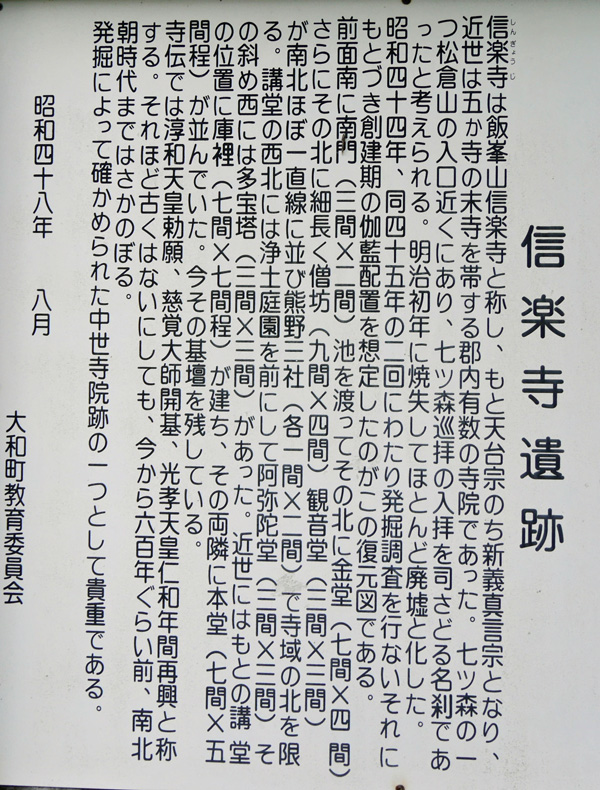 信楽寺遺跡
しんぎょうじ
信楽寺は飯峯山信楽寺と称し、もと天台宗のち新義真言宗となり、
近世は五か寺の末寺を帯する郡内有数の寺院であった。七ツ森の一
つ松倉山の入口近くにあり、七ツ森巡拝の入拝を司さどる名刹であ
ったと考えられる。明治初年に焼失してほとんど廃墟と化した。
昭和四十四年、同四十五年の二回にわたり発掘調査を行ないそれに
もとづき創建期の伽藍配置を想定したのがこの復元図である。
前面南に南門（三間×二間）池を渡ってその北に金堂（七間×四間）
さらにその北に細長く僧坊（九間×四間）観音堂（三間×三間）
が南北ほぼ一直線に並び熊野三社（各一間×二間）で寺域の北を限
る。講堂の西北には浄土庭園を前にして阿弥陀堂（三間×三間）そ
の斜め西には多宝塔（三間×三間）があった。近世にはもとの講堂
の位置に庫裡（七間×七間程）が建ち、その両隣に本堂（七間×五
間程）が並んでいた。今その基壇を残している。
寺伝では淳和天皇勅願、慈覚大師開基、光孝天皇仁和年間再興と称
する。それほど古くはないにしても、今から六百年ぐらい前、南北
朝時代まではさかのぼる。
発掘によって確かめられた中世寺院跡の一つとして貴重である。
昭和四十八年　八月
大和町教育委員会